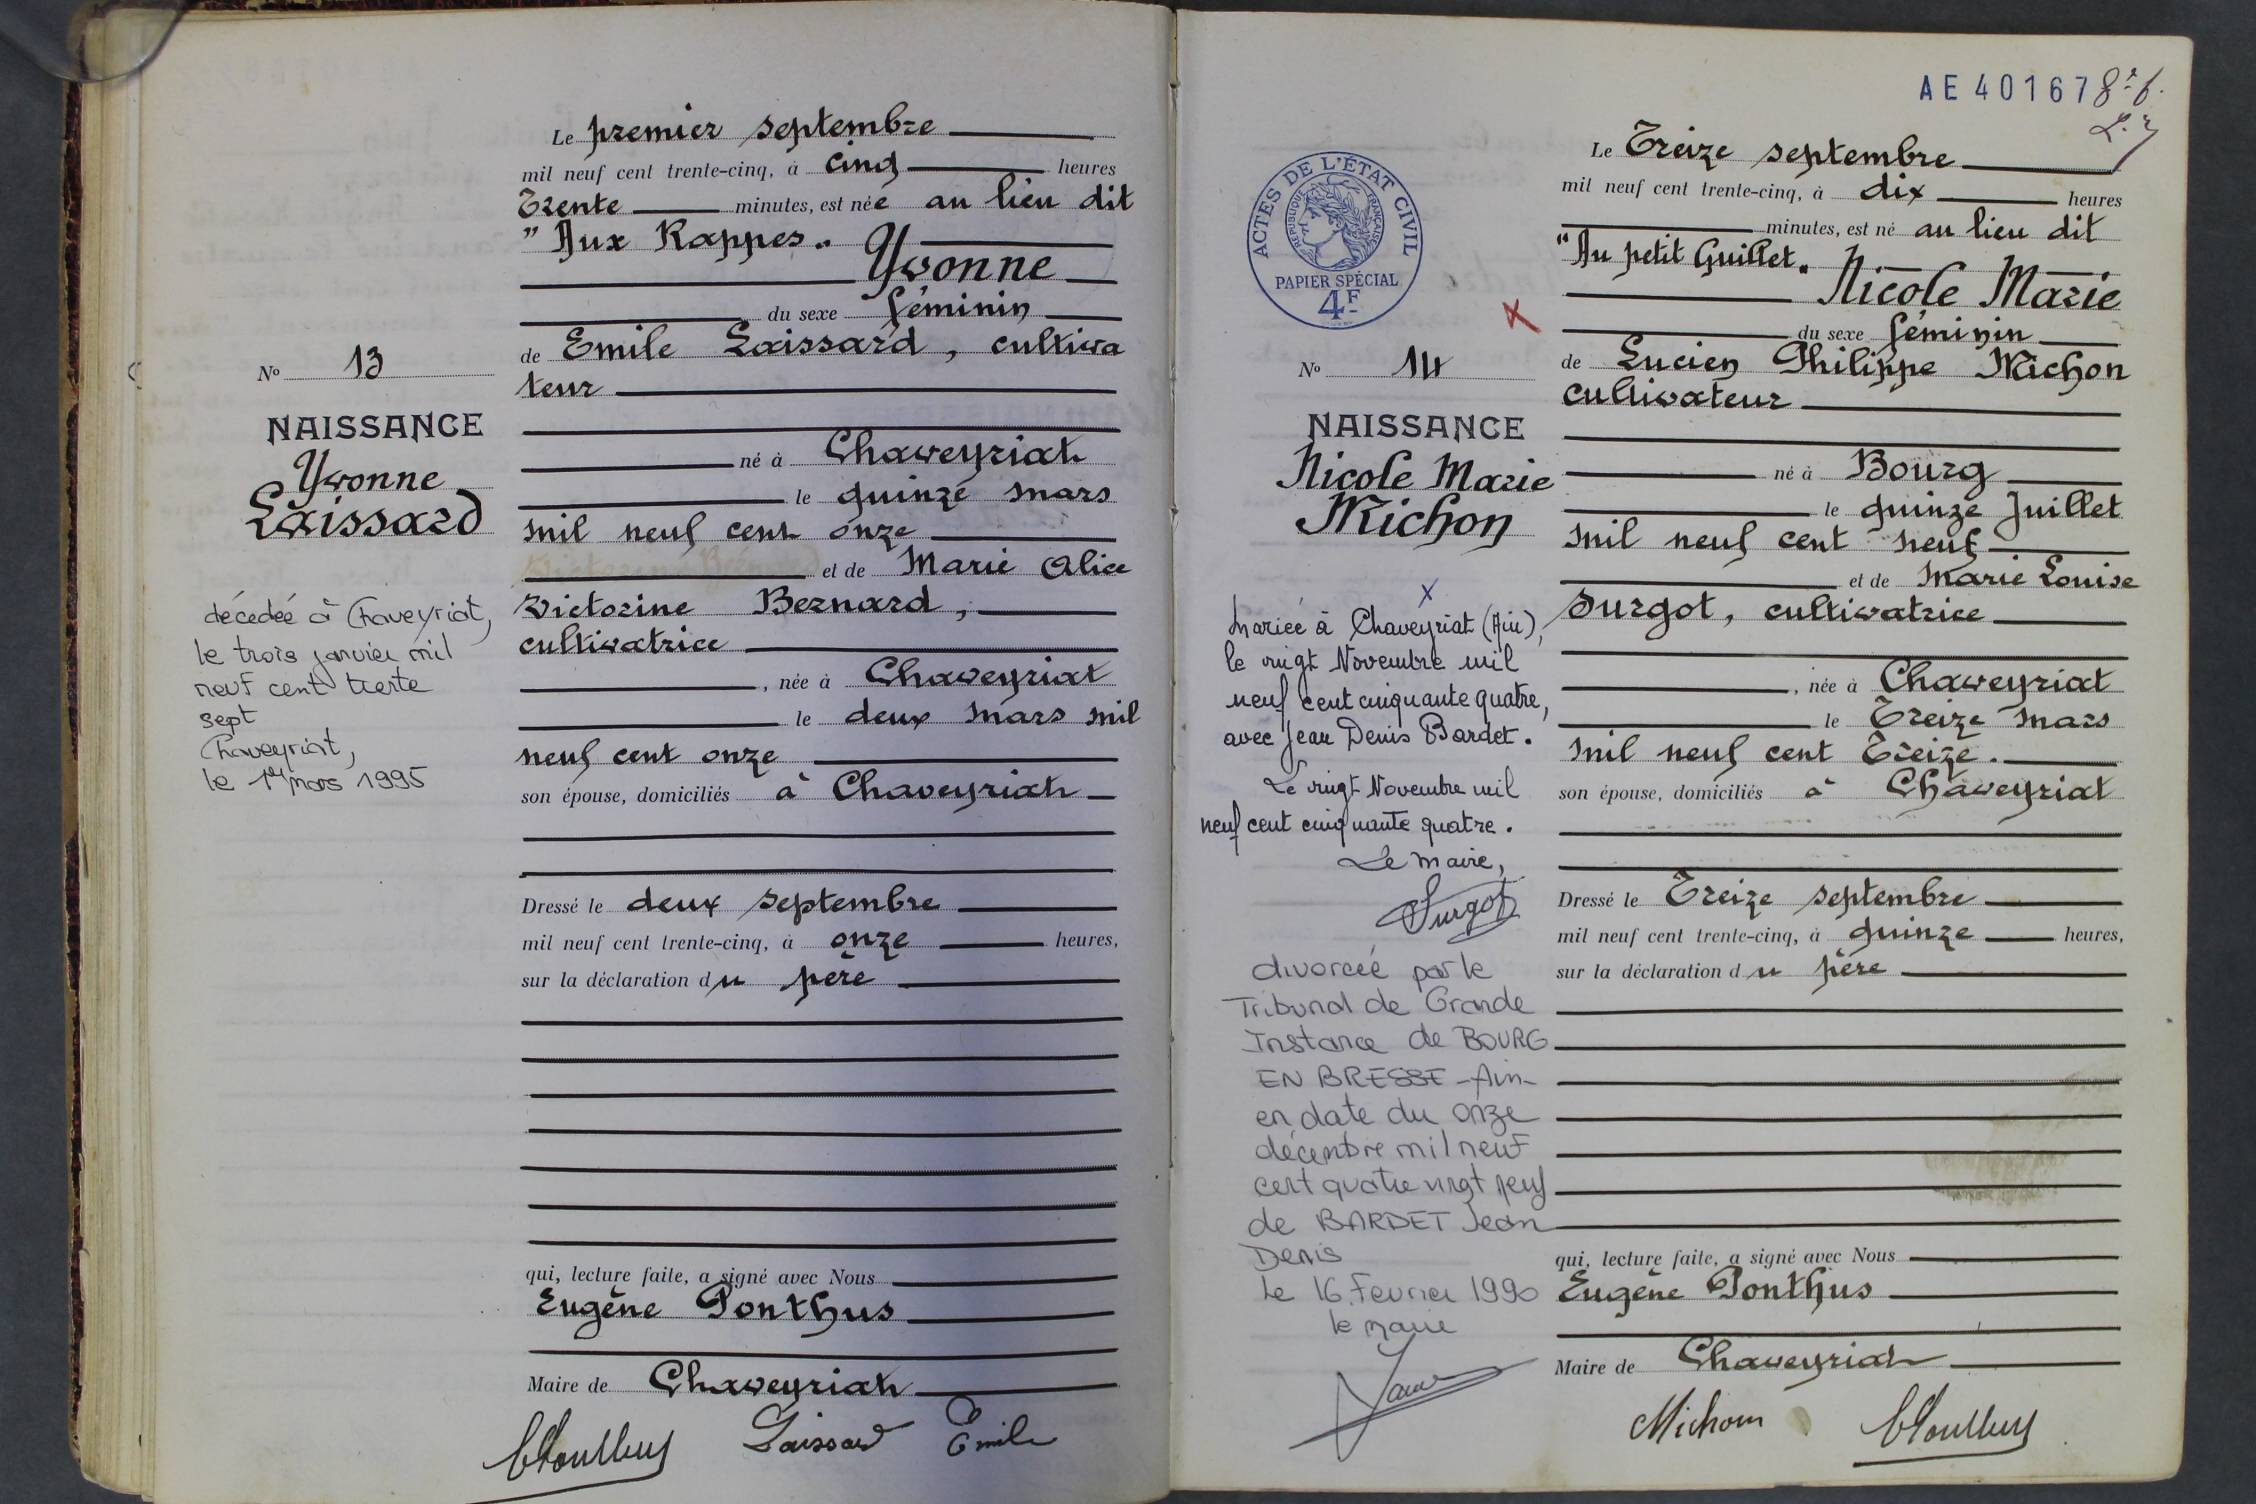 Le premier septembre
mil neuf cent trente-cinq, à cinq heures
Trente minutes, est née au lieu dit
"Aux Rappes"
Yvonne
du sexe féminin
de Emile Laissard, cultiva
teur
né à Chaveyriat
le quinze mars
mil neuf cent onze
et de Marie Alice
Victorine Bernard,
cultivatrice
, née à Chaveyriat
le deux mars mil
neuf cent onze
son épouse, domiciliés à Chaveyriat
Dressé le deux septembre
mil neuf cent trente-cinq, à onze heures,
sur la déclaration du père
qui, lecture faite, a signé avec Nous
Eugène Ponthus
Maire de Chaveyriat
Laissard Emile
No 13
NAISSANCE
Yvonne
Laissard
décédée à Chaveyriat,
le trois janvier mil
neuf cent trente
sept
Chaveyriat,
le 1er mars 1995
AE 401678
ACTES DE L'ÉTAT CIVIL
RÉPUBLIQUE FRANÇAISE
PAPIER SPÉCIAL
4F
No 14
NAISSANCE
Nicole Marie
Michon
X
Mariée à Chaveyriat (Ain),
le vingt Novembre mil
neuf cent cinquante quatre,
avec Jean Denis Bardet.
Le vingt Novembre mil
neuf cent cinquante quatre.
Le maire,
Surgot
divorcée par le
Tribunal de Grande
Instance de BOURG
EN BRESSE -Ain-
en date du onze
décembre mil neuf
cent quatre vingt neuf
de BARDET Jean
Denis
Le 16 Février 1990
le maire
Le Treize septembre
mil neuf cent trente-cinq, à dix heures
minutes, est né au lieu dit
"Au petit Guillet"
Nicole Marie
du sexe féminin
de Lucien Philippe Michon
cultivateur
né à Bourg
le quinze Juillet
mil neuf cent neuf
et de Marie Louise
Surgot, cultivatrice
, née à Chaveyriat
le Treize mars
mil neuf cent Treize.
son épouse, domiciliés à Chaveyriat
Dressé le Treize septembre
mil neuf cent trente-cinq, à quinze heures,
sur la déclaration du père
qui, lecture faite, a signé avec Nous
Eugène Ponthus
Maire de Chaveyriat
Michon